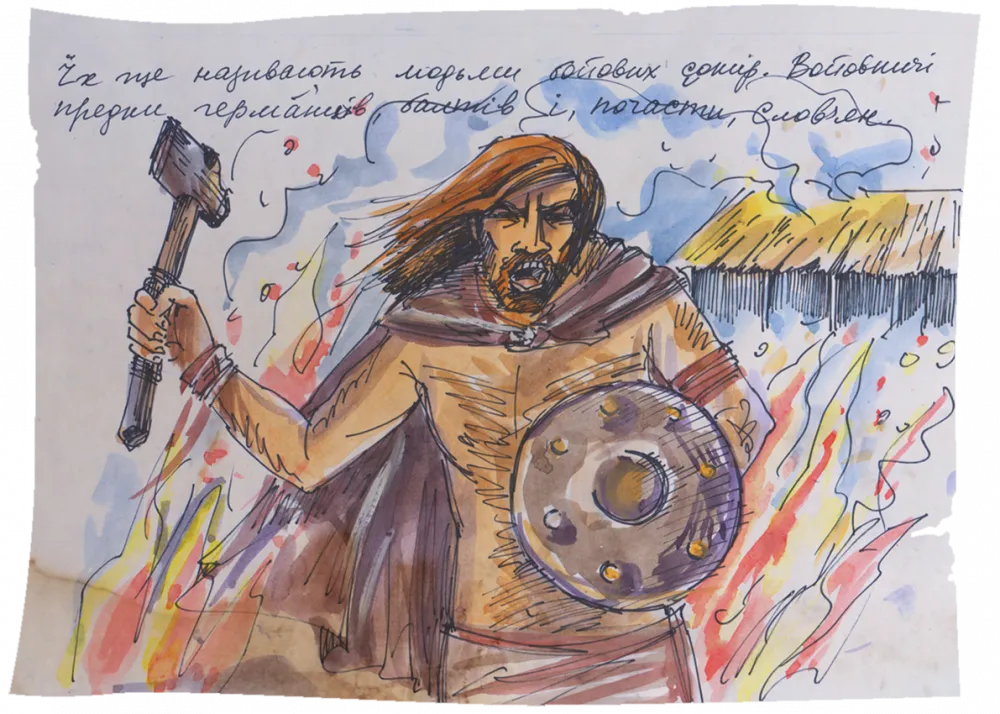 Їх ще називають людьми бойових сокир. Войовничі
предки германців, балтів і, почасти, слов'ян.